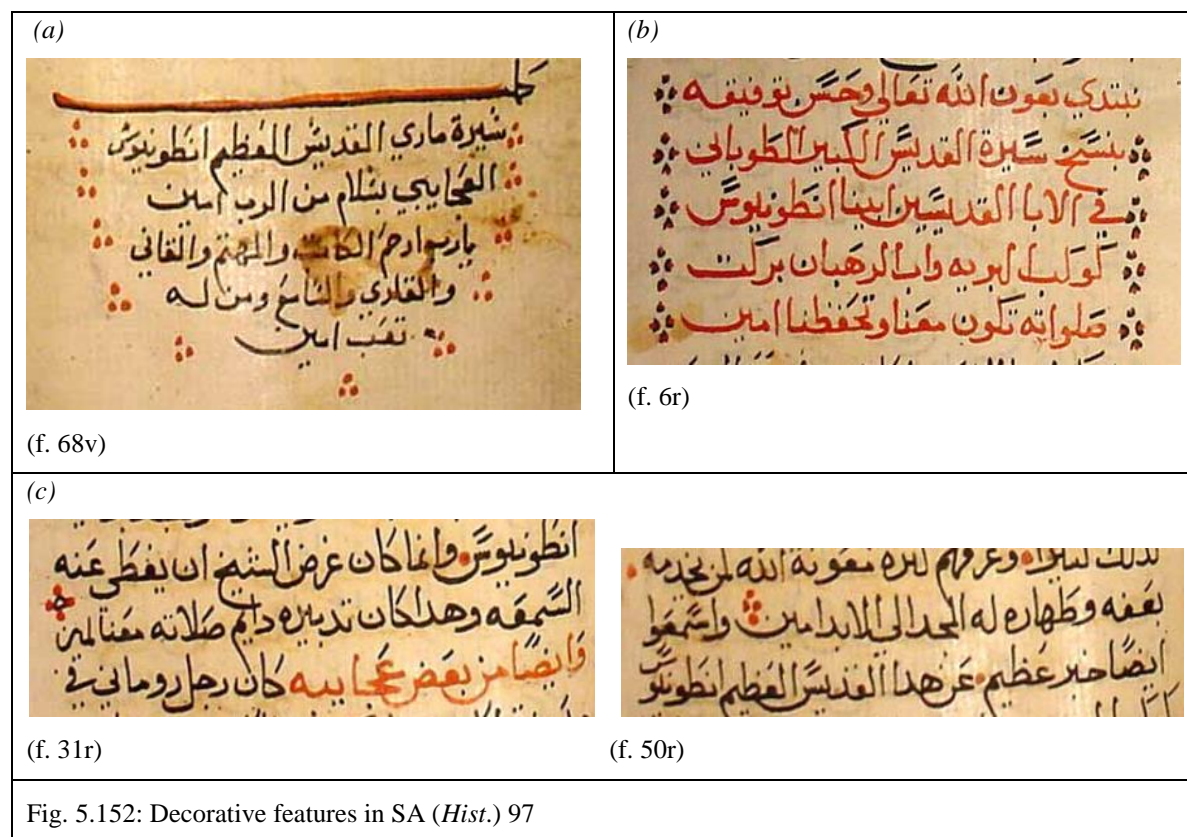 (a)
كملت
سيرة ماري القديس العظيم انطونيوس
العجايبي بسلام من الرب امين
يارب ارحم الكاتب والمهتم والقاني
والقاري والسامع ومن له
تعب امين
(f. 68v)
(b)
نبتدي بعون الله تعالي وحسن توفيقه
بنسخ سيرة القديس الكبير الطوباني
في الابا القديسين ابينا انطونيوس
كوكب البريه واب الرهبان بركت
صلواته تكون معنا وتحفظنا امين
(f. 6r)
(c)
انطونيوس وانما كان غرض الشيخ ان يغطي عنه
السمعه وهدا كان تدبيره دايم صلاته معنا امين
وايضا من بعض عجايبه كان رجل روماني في
(f. 31r)
كتيرا وعرفهم معونة الله لمن يخدمه
بعفه وطهاره له المجد الي الابد امين واسمعوا
ايضا خبر عظيم عن هدا القديس العظيم انطونيوس
(f. 50r)
Fig. 5.152: Decorative features in SA (Hist.) 97